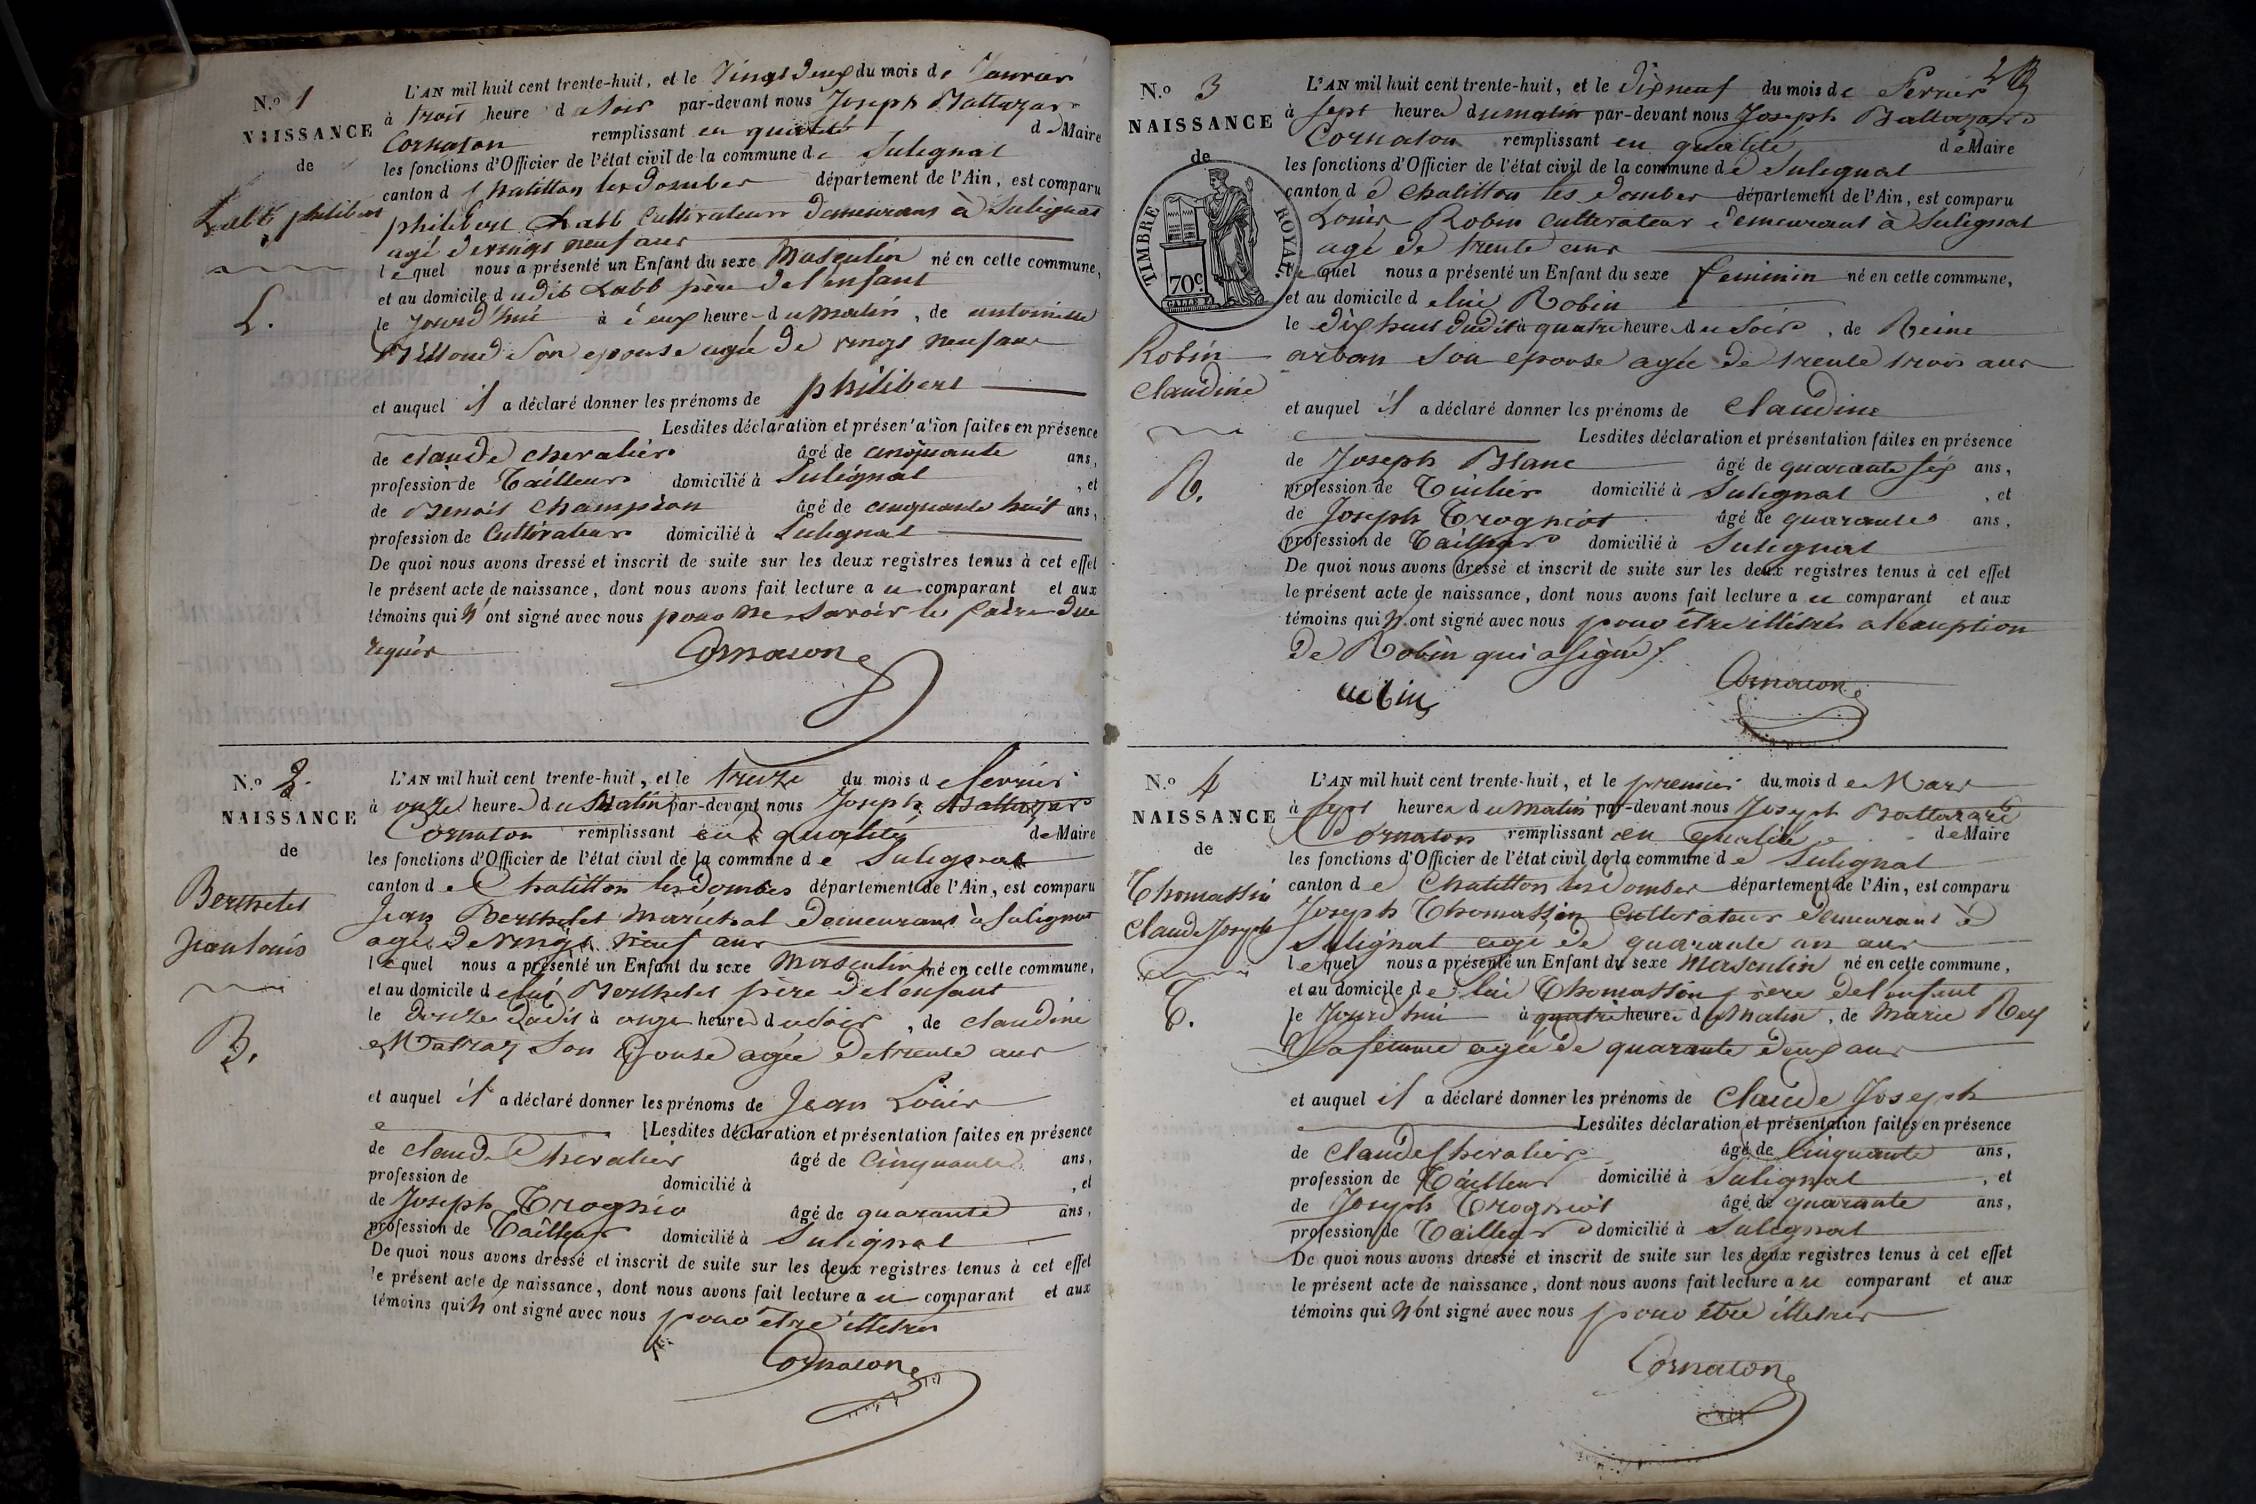 N.o 1
NAISSANCE
de
Labb philibert
L.
L'AN mil huit cent trente-huit, et le Vingt deux du mois de Janvier
à trois heure d u Soir par-devant nous Joseph Baltazar
Cornaton remplissant en qualité de Maire
les fonctions d'Officier de l'état civil de la commune de Sulignat
canton d e Chatillon les dombes département de l'Ain, est comparu
philibert Labb Cultivateur demeurant à Sulignat
agé de vingt neuf ans
lequel nous a présenté un Enfant du sexe Masculin né en cette commune,
et au domicile dudit Labb père de l'enfant
le Jourd'hui à deux heure du matin, de antoinette
son epouse agée de vingt neuf ans
et auquel il a déclaré donner les prénoms de philibert
Lesdites déclaration et présentation faites en présence
de claude chevalier âgé de cinquante ans,
profession de Tailleur domicilié à Sulignat, et
de Benoit Champion âgé de cinquante huit ans,
profession de Cultivateur domicilié à Sulignat
De quoi nous avons dressé et inscrit de suite sur les deux registres tenus à cet effet
le présent acte de naissance, dont nous avons fait lecture au comparant et aux
témoins qui n'ont signé avec nous pour ne savoir le faire due
requis
Cornaton
N.o 2.
NAISSANCE
de
Berthelet
Jean Louis
B.
L'AN mil huit cent trente-huit, et le treize du mois de fevrier
à onze heure du Matin par-devant nous Joseph Baltazar
Cornaton remplissant en qualité de Maire
les fonctions d'Officier de l'état civil de la commune de Sulignat
canton de Chatillon les dombes département de l'Ain, est comparu
Jean Berthelet maréchal demeurant à Sulignat
agé de vingt neuf ans
lequel nous a présenté un Enfant du sexe Masculin né en cette commune,
et au domicile de lui Berthelet père de l'enfant
le douze dudit à onze heure du soir, de claudine
Matray son Epouse agée de trente ans
et auquel il a déclaré donner les prénoms de Jean Louis
Lesdites déclaration et présentation faites en présence
de claude Chevalier âgé de Cinquante ans,
profession de domicilié à , et
de Joseph Trognio âgé de quarante ans,
profession de Tailleur domicilié à Sulignat
De quoi nous avons dressé et inscrit de suite sur les deux registres tenus à cet effet
le présent acte de naissance, dont nous avons fait lecture au comparant et aux
témoins qui n ont signé avec nous pour être illetrés
Cornaton
2
N.o 3
NAISSANCE
de
TIMBRE ROYAL.
70c.
Robin
claudine
R.
L'AN mil huit cent trente-huit, et le dixneuf du mois de Fevrier
à sept heure du matin par-devant nous Joseph Baltazard
Cornaton remplissant en qualité de Maire
les fonctions d'Officier de l'état civil de la commune de Sulignat
canton de chatillon les dombes département de l'Ain, est comparu
Louis Robin cultivateur demeurant à Sulignat
agé de trente ans
lequel nous a présenté un Enfant du sexe feminin né en cette commune,
et au domicile de lui Robin
le dixhuit dudit à quatre heure du soir, de Reine
arban son epouse agée de trente trois ans
et auquel il a déclaré donner les prénoms de claudine
Lesdites déclaration et présentation faites en présence
de Joseph Blanc âgé de quarante six ans,
profession de Tuilier domicilié à Sulignat, et
de Joseph Trogniot âgé de quarante ans,
profession de Tailleur domicilié à Sulignat
De quoi nous avons dressé et inscrit de suite sur les deux registres tenus à cet effet
le présent acte de naissance, dont nous avons fait lecture au comparant et aux
témoins qui n ont signé avec nous pour être illétrés a léxeption
de Robin qui a signé
Cornaton
N.o 4
NAISSANCE
de
Thomassin
Claude Joseph
T.
L'AN mil huit cent trente-huit, et le premier du mois de Mars
à sept heure du matin par-devant nous Joseph Baltazard
Cornaton remplissant en qualité de Maire
les fonctions d'Officier de l'état civil de la commune de Sulignat
canton de Chatillon les dombes département de l'Ain, est comparu
Joseph Thomassin Cultivateur demeurant à
Sulignat agé de quarante un ans
lequel nous a présenté un Enfant du sexe Masculin né en cette commune,
et au domicile de lui Thomassin père de l'enfant
le Jourd'hui à quatre heure du Matin, de Marie Rey
Sa femme agée de quarante deux ans
et auquel il a déclaré donner les prénoms de Claude Joseph
Lesdites déclaration et présentation faites en présence
de Claude Chevalier âgé de Cinquante ans,
profession de Tailleur domicilié à Sulignat, et
de Joseph Trogniot âgé de quarante ans,
profession de Tailleur domicilié à Sulignat
De quoi nous avons dressé et inscrit de suite sur les deux registres tenus à cet effet
le présent acte de naissance, dont nous avons fait lecture au comparant et aux
témoins qui n'ont signé avec nous pour être illetrés
Cornaton